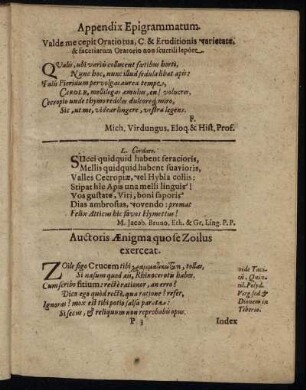 Appendix Epigrammatum.
Valde me cepit Oratio tua, C. & Eruditionis varietate,
& facetiarum Oratorio non scurrili lepore.
QUalis, ubi variis collucent floribus horti,
Nunc hoc, nunc illud sedula libat apis:
Talis Pieridum pervolgas aurea tempe,
CAROLE, mellilegas æmulus, en! volucres,
Cecropio unde thymo redoles dulcoreq; miro,
Sic, ut me, videar lingere, vestra legens.
F.
Mich. Virdungus, Eloq. & Hist. Prof.
L. Caroliaro.
SUcci quidquid habent feracioris,
Mellis quidquid habent suavioris,
Valles Cecropiæ, vel Hybla collis;
Stipat hîc Apis una mellilinguis!
Vos gustate, Viri, boni saporis
Dias ambrosias, vovendo: premat
Felix Atticus hic favos Hymettus!
M. Jacob. Bruno, Eth. & Gr. Ling. P. P.
Auctoris Ænigma quo se Zoilus
exerceat.
ZOile figo Crucem tibi, tollas,
Si nasum quod an, Rhinocerotis habes.
Cum scribo sitium: rectè ratiocner, an erro?
Dicn ego quòd rectè, qua ratione? refer,
Ignoras? mox est tibi potio salsa parata:
Si secus, & reliquum non reprobabis opus.
vide Taci-
t. Quinti-
l. Polyd.
Virg. sed &
Dionem in
Tiberio.
P 3
Index